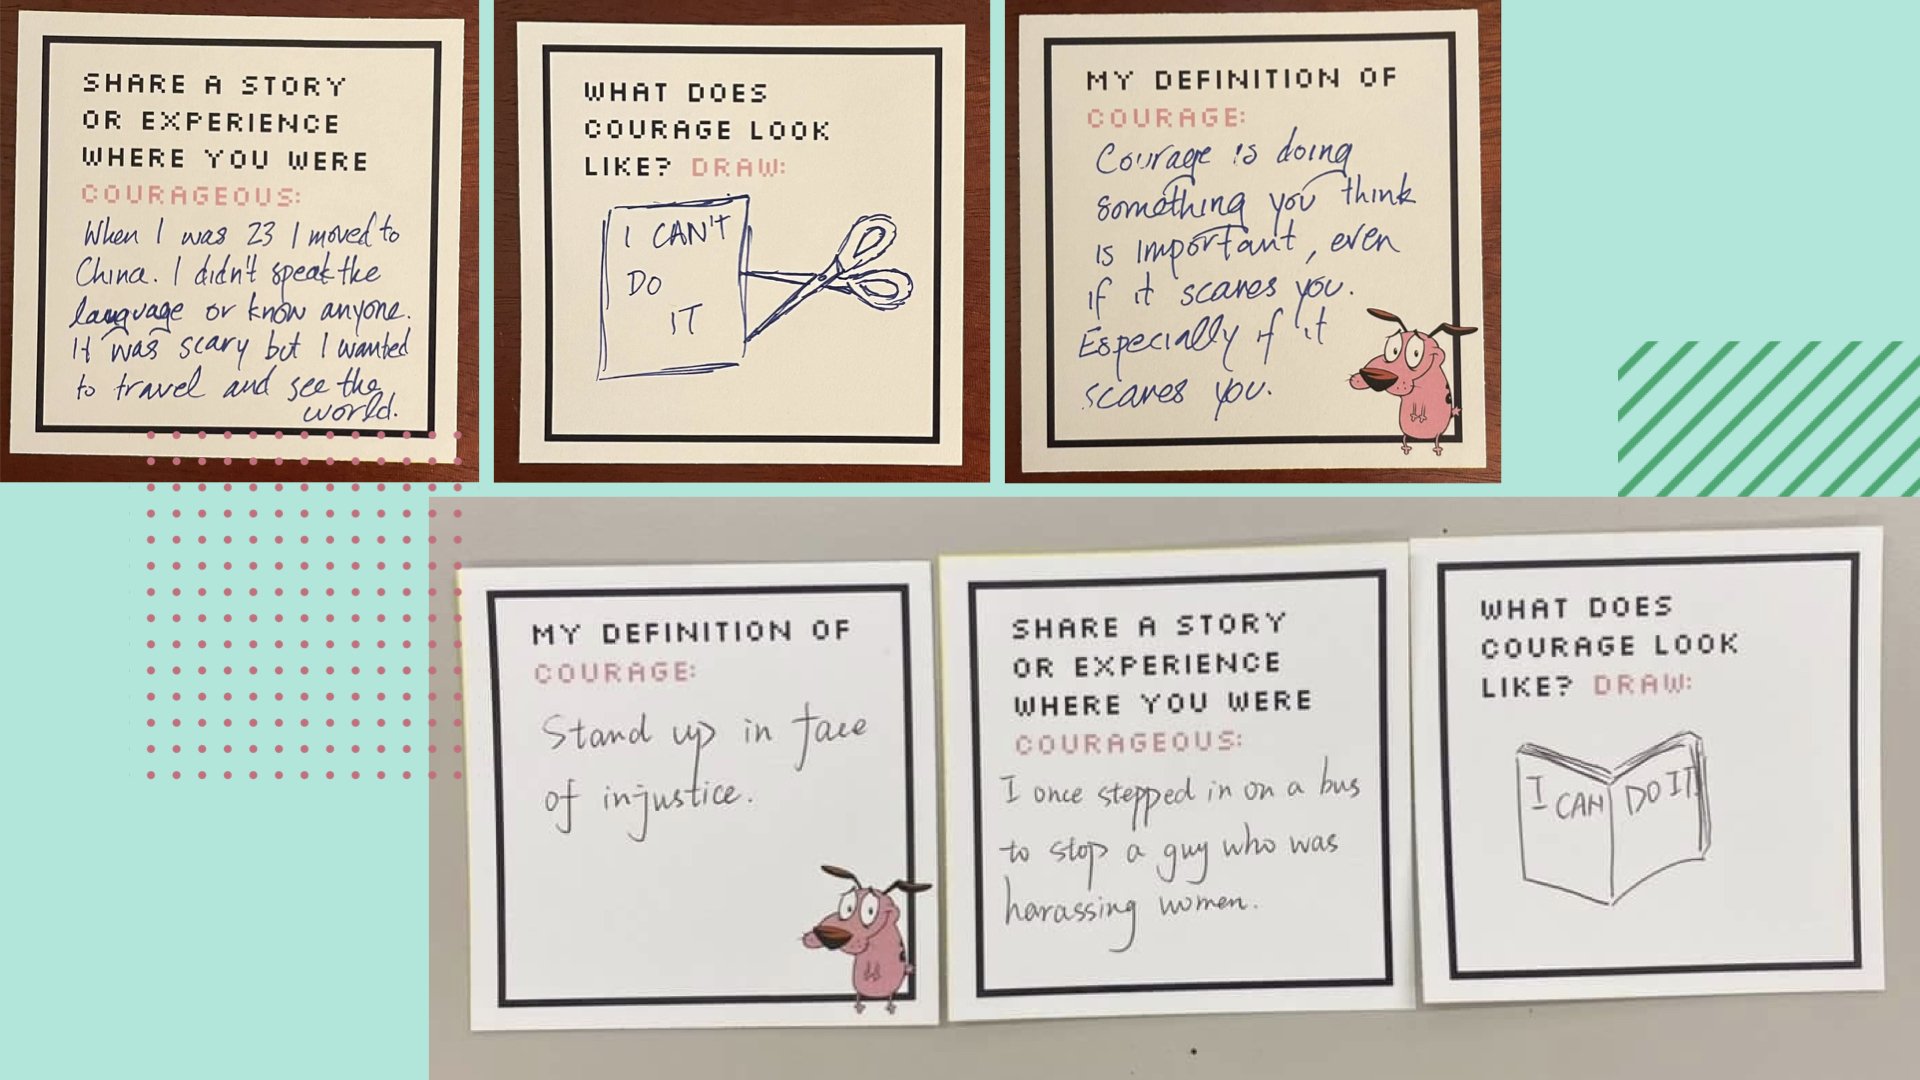 SHARE A STORY
OR EXPERIENCE
WHERE YOU WERE
COURAGEOUS:
When I was 23 I moved to
China. I didn't speak the
language or know anyone.
It was scary but I wanted
to travel and see the
world.
WHAT DOES
COURAGE LOOK
LIKE? DRAW:
I CAN'T
DO
IT
MY DEFINITION OF
COURAGE:
Courage is doing
something you think
is important, even
if it scares you.
Especially if it
scares you.
MY DEFINITION OF
COURAGE:
Stand up in face
of injustice.
SHARE A STORY
OR EXPERIENCE
WHERE YOU WERE
COURAGEOUS:
I once stepped in on a bus
to stop a guy who was
harassing women.
WHAT DOES
COURAGE LOOK
LIKE? DRAW:
I CAN DO IT!